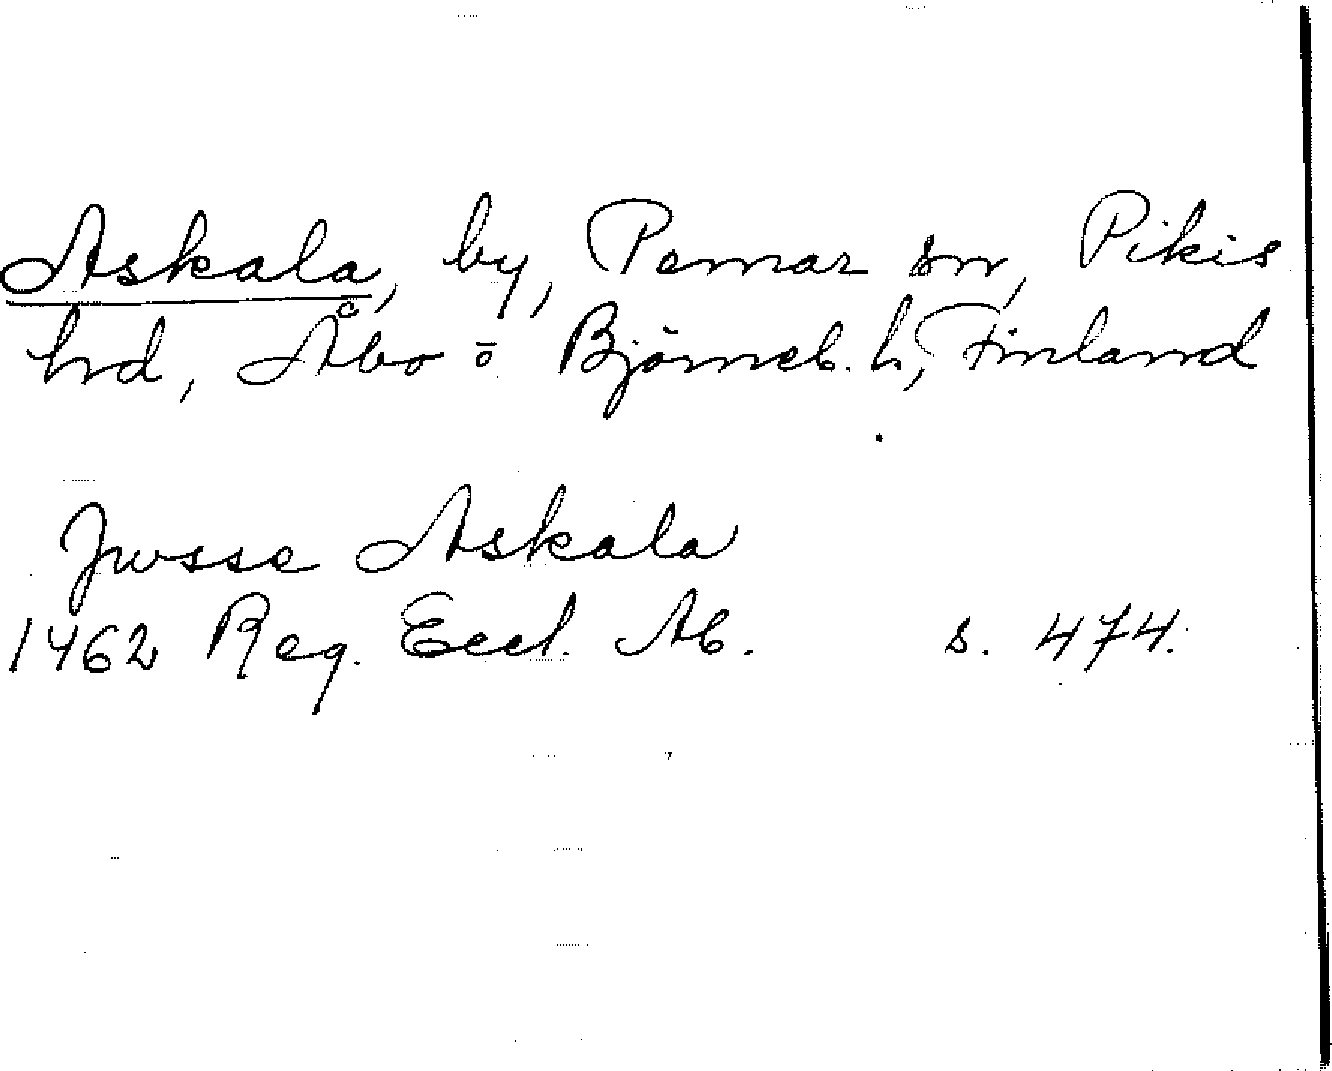 Askala, by, Pemar sn, Pikis
hd, Åbo o Björneb. L, Finland
Jusse Askala
1462 Reg. Eccl. Ab. s. 474.